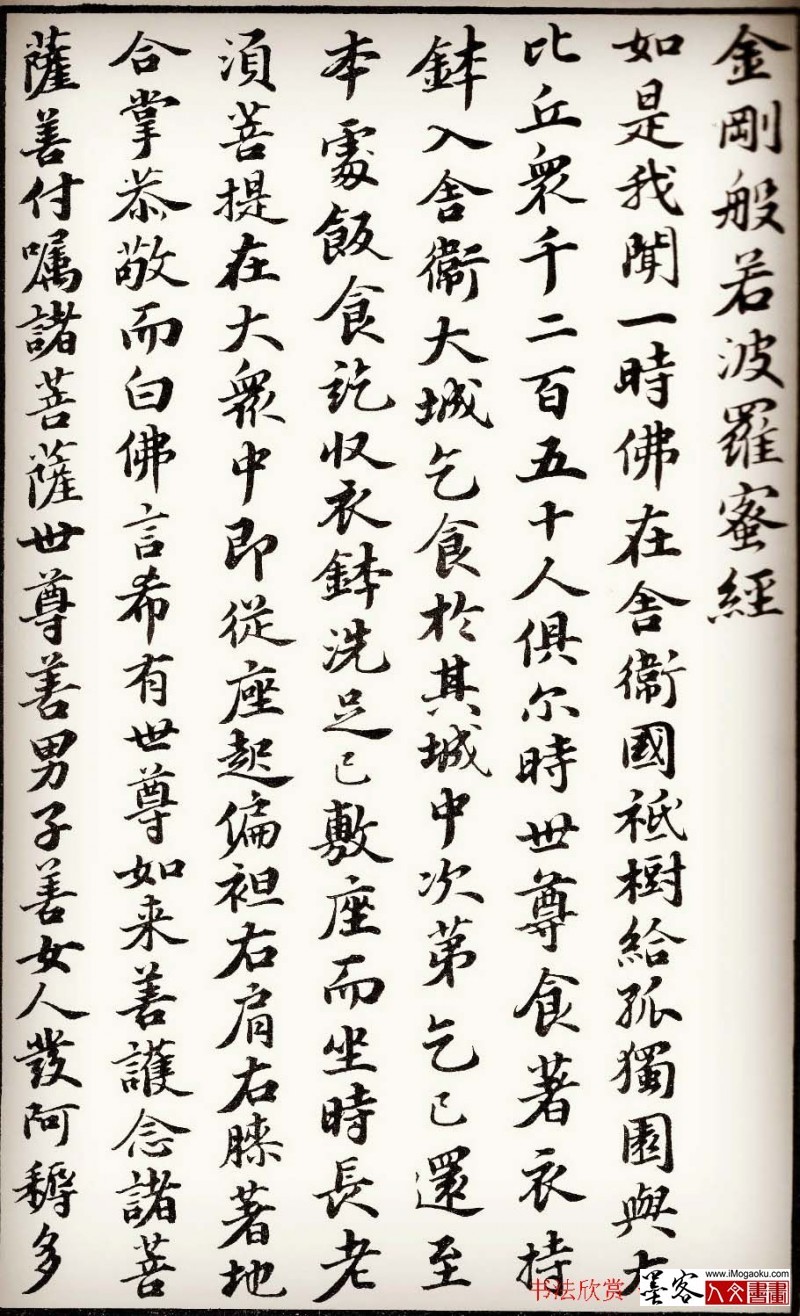 金剛般若波羅蜜經
如是我聞一時佛在舍衞國祇樹給孤獨園與大
比丘衆千二百五十人俱尔時世尊食著衣持
鉢入舍衞大城乞食於其城中次第乞已還至
本處飯食訖収衣鉢洗足已敷座而坐時長老
湏菩提在大衆中即從座起偏袒右肩右膝著地
合掌恭敬而白佛言希有世尊如来善護念諸菩
薩善付嘱諸菩薩世尊善男子善女人發阿耨多
书法欣赏
www.iMogaoku.com
墨客
人文書畫